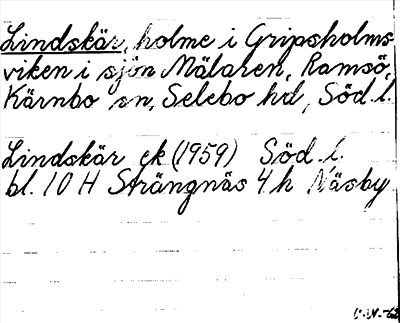 Lindskär, holme i Gripsholms-
viken i sjön Mälaren, Ramsö,
Kärnbo sn, Selebo hd, Söd. l.
Lindskär ek (1959) Söd. l.
bl. 10 H Strängnäs 4 h Näsby